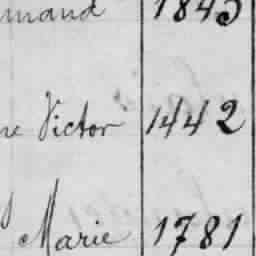 mand 1845
re Victor 1442
Marie 1781